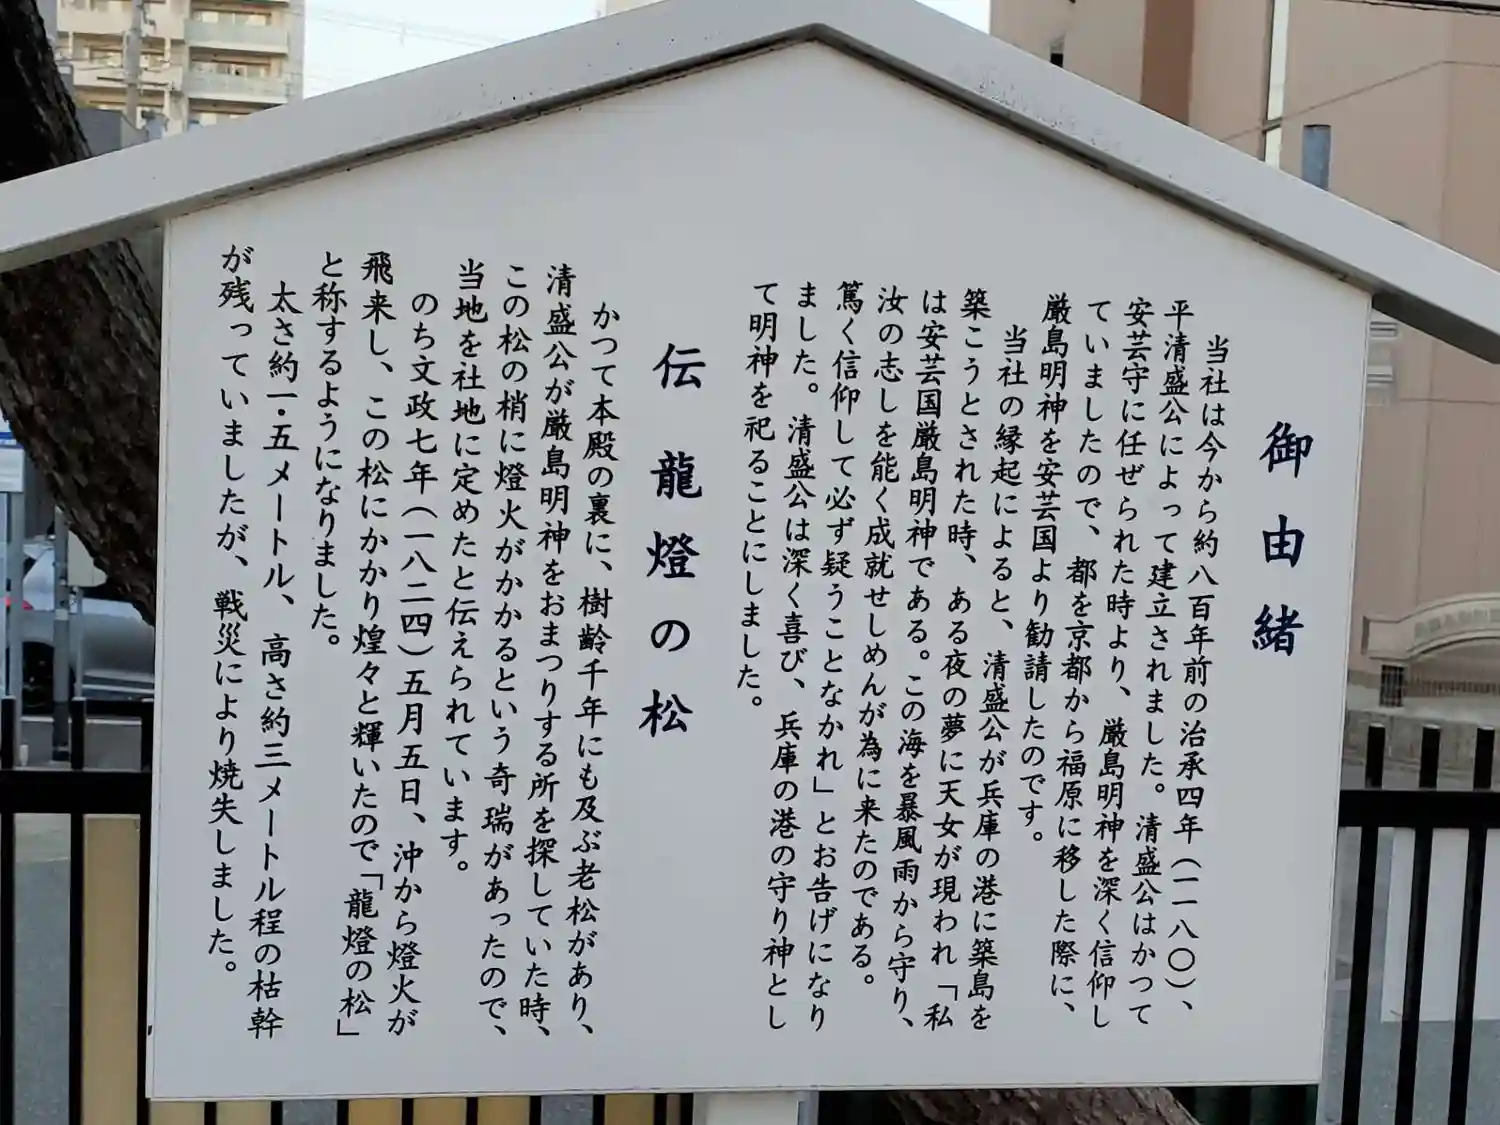 御由緒
当社は今から約八百年前の治承四年(一一八〇)、
平清盛公によって建立されました。清盛公はかつて
安芸守に任ぜられた時より、厳島明神を深く信仰し
ていましたので、都を京都から福原に移した際に、
厳島明神を安芸国より勧請したのです。
当社の縁起によると、清盛公が兵庫の港に築島を
築こうとされた時、ある夜の夢に天女が現われ「私
は安芸国厳島明神である。この海を暴風雨から守り、
汝の志しを能く成就せしめんが為に来たのである。
篤く信仰して必ず疑うことなかれ」とお告げになり
ました。清盛公は深く喜び、兵庫の港の守り神とし
て明神を祀ることにしました。
伝龍燈の松
かつて本殿の裏に、樹齢千年にも及ぶ老松があり、
清盛公が厳島明神をおまつりする所を探していた時、
この松の梢に燈火がかかるという奇瑞があったので、
当地を社地に定めたと伝えられています。
のち文政七年(一八二四)五月五日、沖から燈火が
飛来し、この松にかかり煌々と輝いたので「龍燈の松」
と称するようになりました。
太さ約一・五メートル、高さ約三メートル程の枯幹
が残っていましたが、戦災により焼失しました。